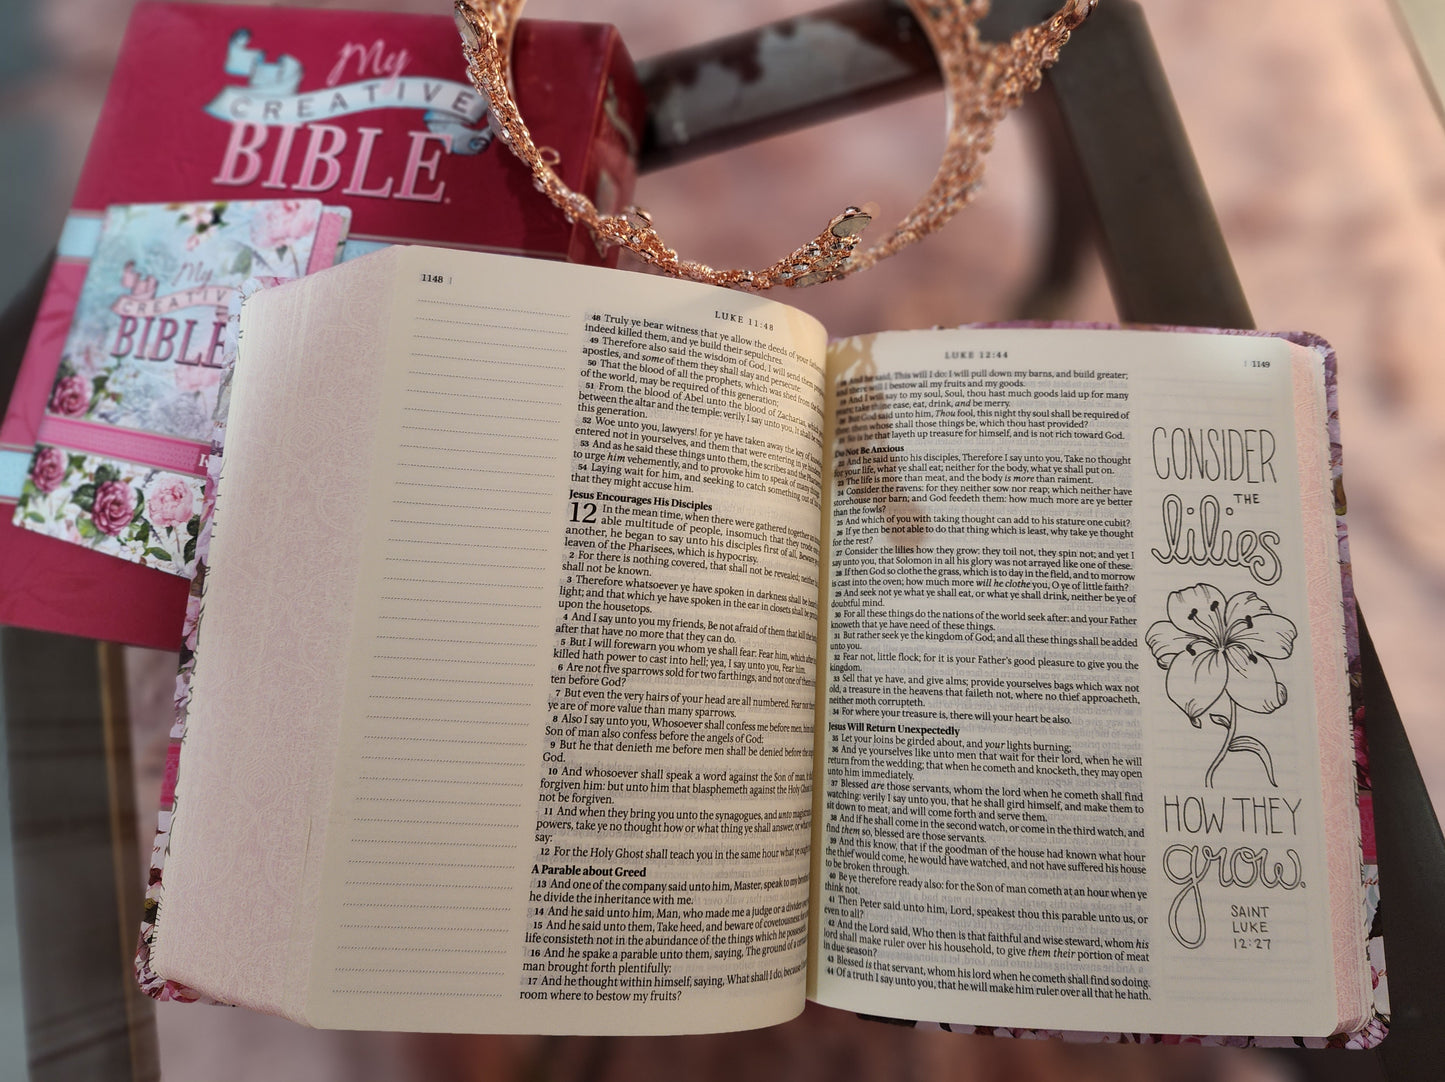 My
CREATIVE
BIBLE
My
CREATIVE
BIBLE
K
1148
LUKE 11:48
48 Truly ye bear witness that ye allow the deeds of your
indeed killed them, and ye build their sepulchres.
49 Therefore also said the wisdom of God, I will send them
apostles, and some of them they shall slay and persecute:
50 That the blood of all the prophets, which was shed from the
of the world, may be required of this generation;
51 From the blood of Abel unto the blood of Zacharias, which
between the altar and the temple: verily I say unto you, It shall be
this generation.
52 Woe unto you, lawyers! for ye have taken away the key of
entered not in yourselves, and them that were entering in ye
53 And as he said these things unto them, the scribes and the
to urge him vehemently, and to provoke him to speak of many
54 Laying wait for him, and seeking to catch something out of
that they might accuse him.
Jesus Encourages His Disciples
12 In the mean time, when there were gathered together
able multitude of people, insomuch that they trode
another, he began to say unto his disciples first of all, Beware
leaven of the Pharisees, which is hypocrisy.
2 For there is nothing covered, that shall not be revealed; neither
shall not be known.
3 Therefore whatsoever ye have spoken in darkness shall be
light; and that which ye have spoken in the ear in closets shall be
upon the housetops.
4 And I say unto you my friends, Be not afraid of them that kill the
after that have no more that they can do.
5 But I will forewarn you whom ye shall fear: Fear him, which after
killed hath power to cast into hell; yea, I say unto you, Fear him.
6 Are not five sparrows sold for two farthings, and not one of them
ten before God?
7 But even the very hairs of your head are all numbered. Fear not
ye are of more value than many sparrows.
8 Also I say unto you, Whosoever shall confess me before men, him
Son of man also confess before the angels of God:
9 But he that denieth me before men shall be denied before the
God.
10 And whosoever shall speak a word against the Son of man, it
forgiven him: but unto him that blasphemeth against the Holy Ghost
not be forgiven.
11 And when they bring you unto the synagogues, and unto
powers, take ye no thought how or what thing ye shall answer, or what
say:
12 For the Holy Ghost shall teach you in the same hour what ye
A Parable about Greed
13 And one of the company said unto him, Master, speak to my
he divide the inheritance with me.
14 And he said unto him, Man, who made me a judge or a divider
15 And he said unto them, Take heed, and beware of covetousness: for
life consisteth not in the abundance of the things which he
16 And he spake a parable unto them, saying, The ground of a
man brought forth plentifully:
17 And he thought within himself, saying, What shall I do, because
room where to bestow my fruits?
LUKE 12:44
1149
And he said, This will I do: I will pull down my barns, and build greater;
and there will I bestow all my fruits and my goods.
And I will say to my soul, Soul, thou hast much goods laid up for many
years; take thine ease, eat, drink, and be merry.
But God said unto him, Thou fool, this night thy soul shall be required of
thee: then whose shall those things be, which thou hast provided?
So is he that layeth up treasure for himself, and is not rich toward God.
Do Not Be Anxious
22 And he said unto his disciples, Therefore I say unto you, Take no thought
for your life, what ye shall eat; neither for the body, what ye shall put on.
23 The life is more than meat, and the body is more than raiment.
24 Consider the ravens: for they neither sow nor reap; which neither have
storehouse nor barn; and God feedeth them: how much more are ye better
than the fowls?
25 And which of you with taking thought can add to his stature one cubit?
26 If ye then be not able to do that thing which is least, why take ye thought
for the rest?
27 Consider the lilies how they grow: they toil not, they spin not; and yet I
say unto you, that Solomon in all his glory was not arrayed like one of these.
28 If then God so clothe the grass, which is to day in the field, and to morrow
is cast into the oven; how much more will he clothe you, O ye of little faith?
29 And seek not ye what ye shall eat, or what ye shall drink, neither be ye of
doubtful mind.
30 For all these things do the nations of the world seek after: and your Father
knoweth that ye have need of these things.
31 But rather seek ye the kingdom of God; and all these things shall be added
unto you.
32 Fear not, little flock; for it is your Father's good pleasure to give you the
kingdom.
33 Sell that ye have, and give alms; provide yourselves bags which wax not
old, a treasure in the heavens that faileth not, where no thief approacheth,
neither moth corrupteth.
34 For where your treasure is, there will your heart be also.
Jesus Will Return Unexpectedly
35 Let your loins be girded about, and your lights burning;
36 And ye yourselves like unto men that wait for their lord, when he will
return from the wedding; that when he cometh and knocketh, they may open
unto him immediately.
37 Blessed are those servants, whom the lord when he cometh shall find
watching: verily I say unto you, that he shall gird himself, and make them to
sit down to meat, and will come forth and serve them.
38 And if he shall come in the second watch, or come in the third watch, and
find them so, blessed are those servants.
39 And this know, that if the goodman of the house had known what hour
the thief would come, he would have watched, and not have suffered his house
to be broken through.
40 Be ye therefore ready also: for the Son of man cometh at an hour when ye
think not.
41 Then Peter said unto him, Lord, speakest thou this parable unto us, or
even to all?
42 And the Lord said, Who then is that faithful and wise steward, whom his
lord shall make ruler over his household, to give them their portion of meat
in due season?
43 Blessed is that servant, whom his lord when he cometh shall find so doing.
44 Of a truth I say unto you, that he will make him ruler over all that he hath.
CONSIDER
THE
lilies
HOW THEY
grow.
SAINT
LUKE
12:27